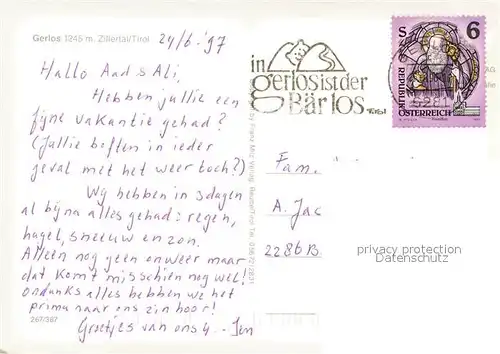 Gerlos 1245 m. Zillertal/Tirol
24/6 '97
Hallo Aad & Ali,
Hebben jullie een
fijne vakantie gehad?
(Jullie boften in ieder
geval met het weer toch?)
Wij hebben in 3 dagen
al bijna alles gehad: regen,
hagel, sneeuw en zon.
Alleen nog geen onweer maar
dat komt misschien nog wel.
Ondanks alles hebben we het
prima naar ons zin hoor!
Groetjes van ons 4 -
267/367
in
gerlos ist der
Bär los
Tirol
S 6
REPUBLIK
ÖSTERREICH
5281
Fam.
A. Jac
2286 B
privacy protection
Datenschutz